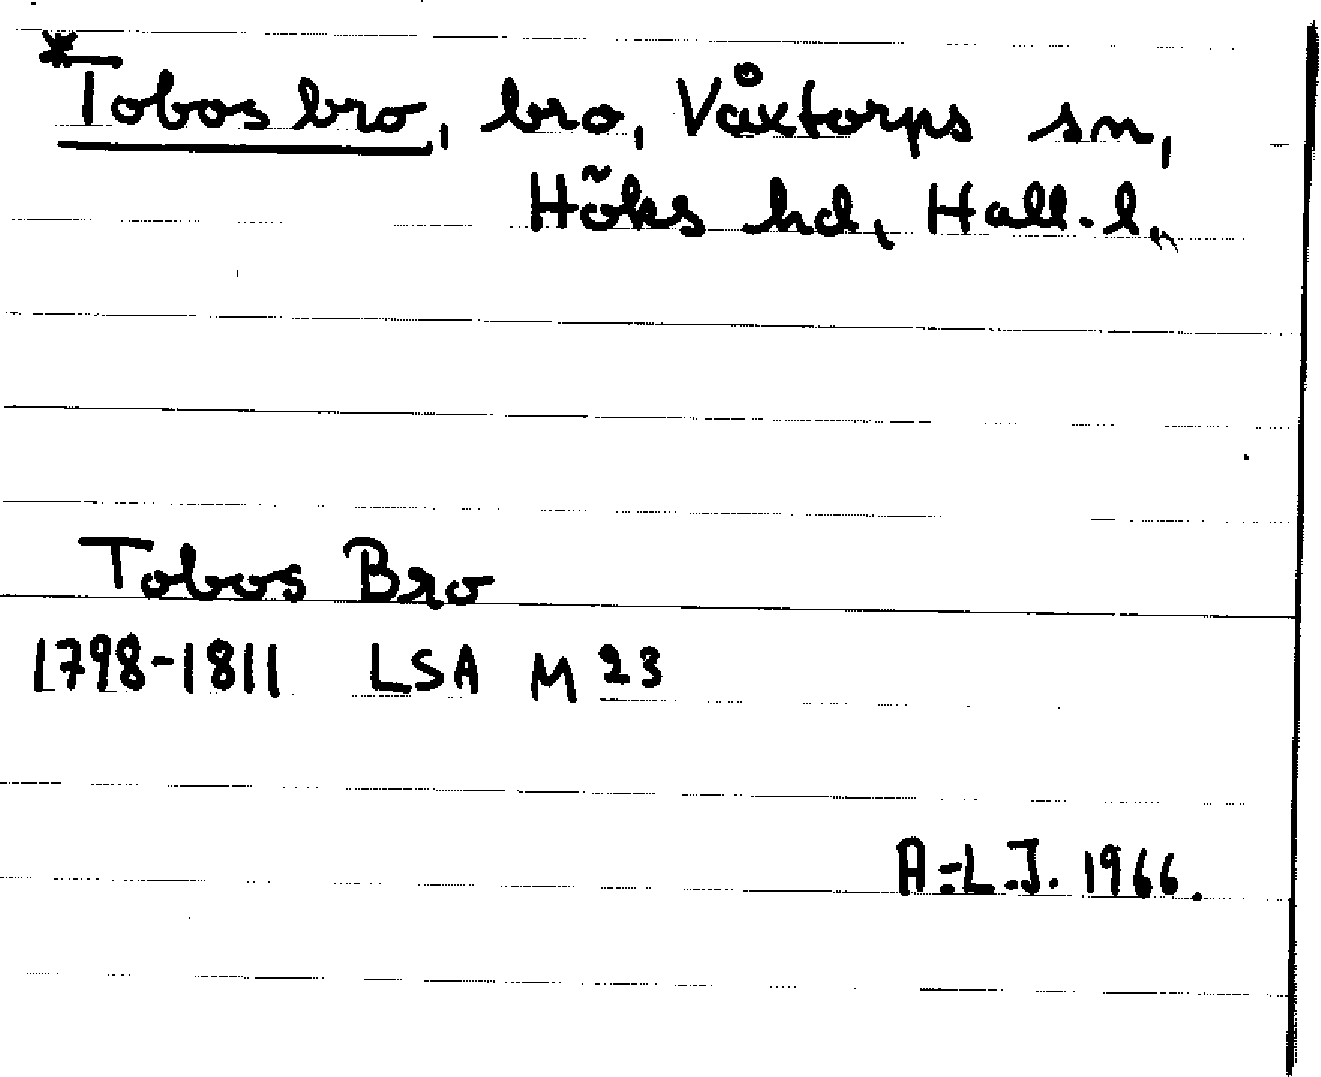 *Tobos bro, bro, Våxtorps sn,
Höks hd, Hall. l.
Tobos Bro
1798-1811 LSA M 23
A-L.J. 1966.